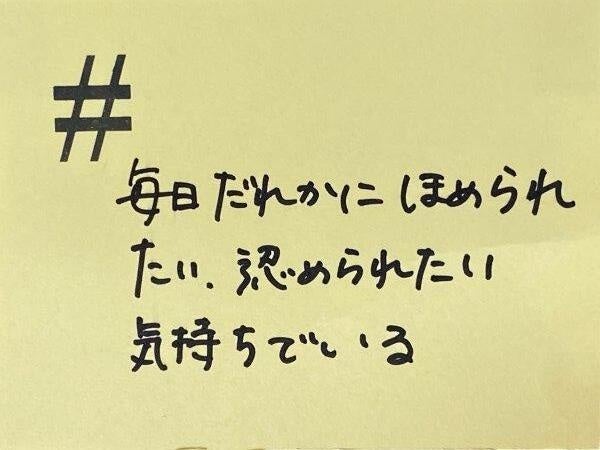 #
毎日だれかにほめられ
たい、認められたい
気持ちでいる